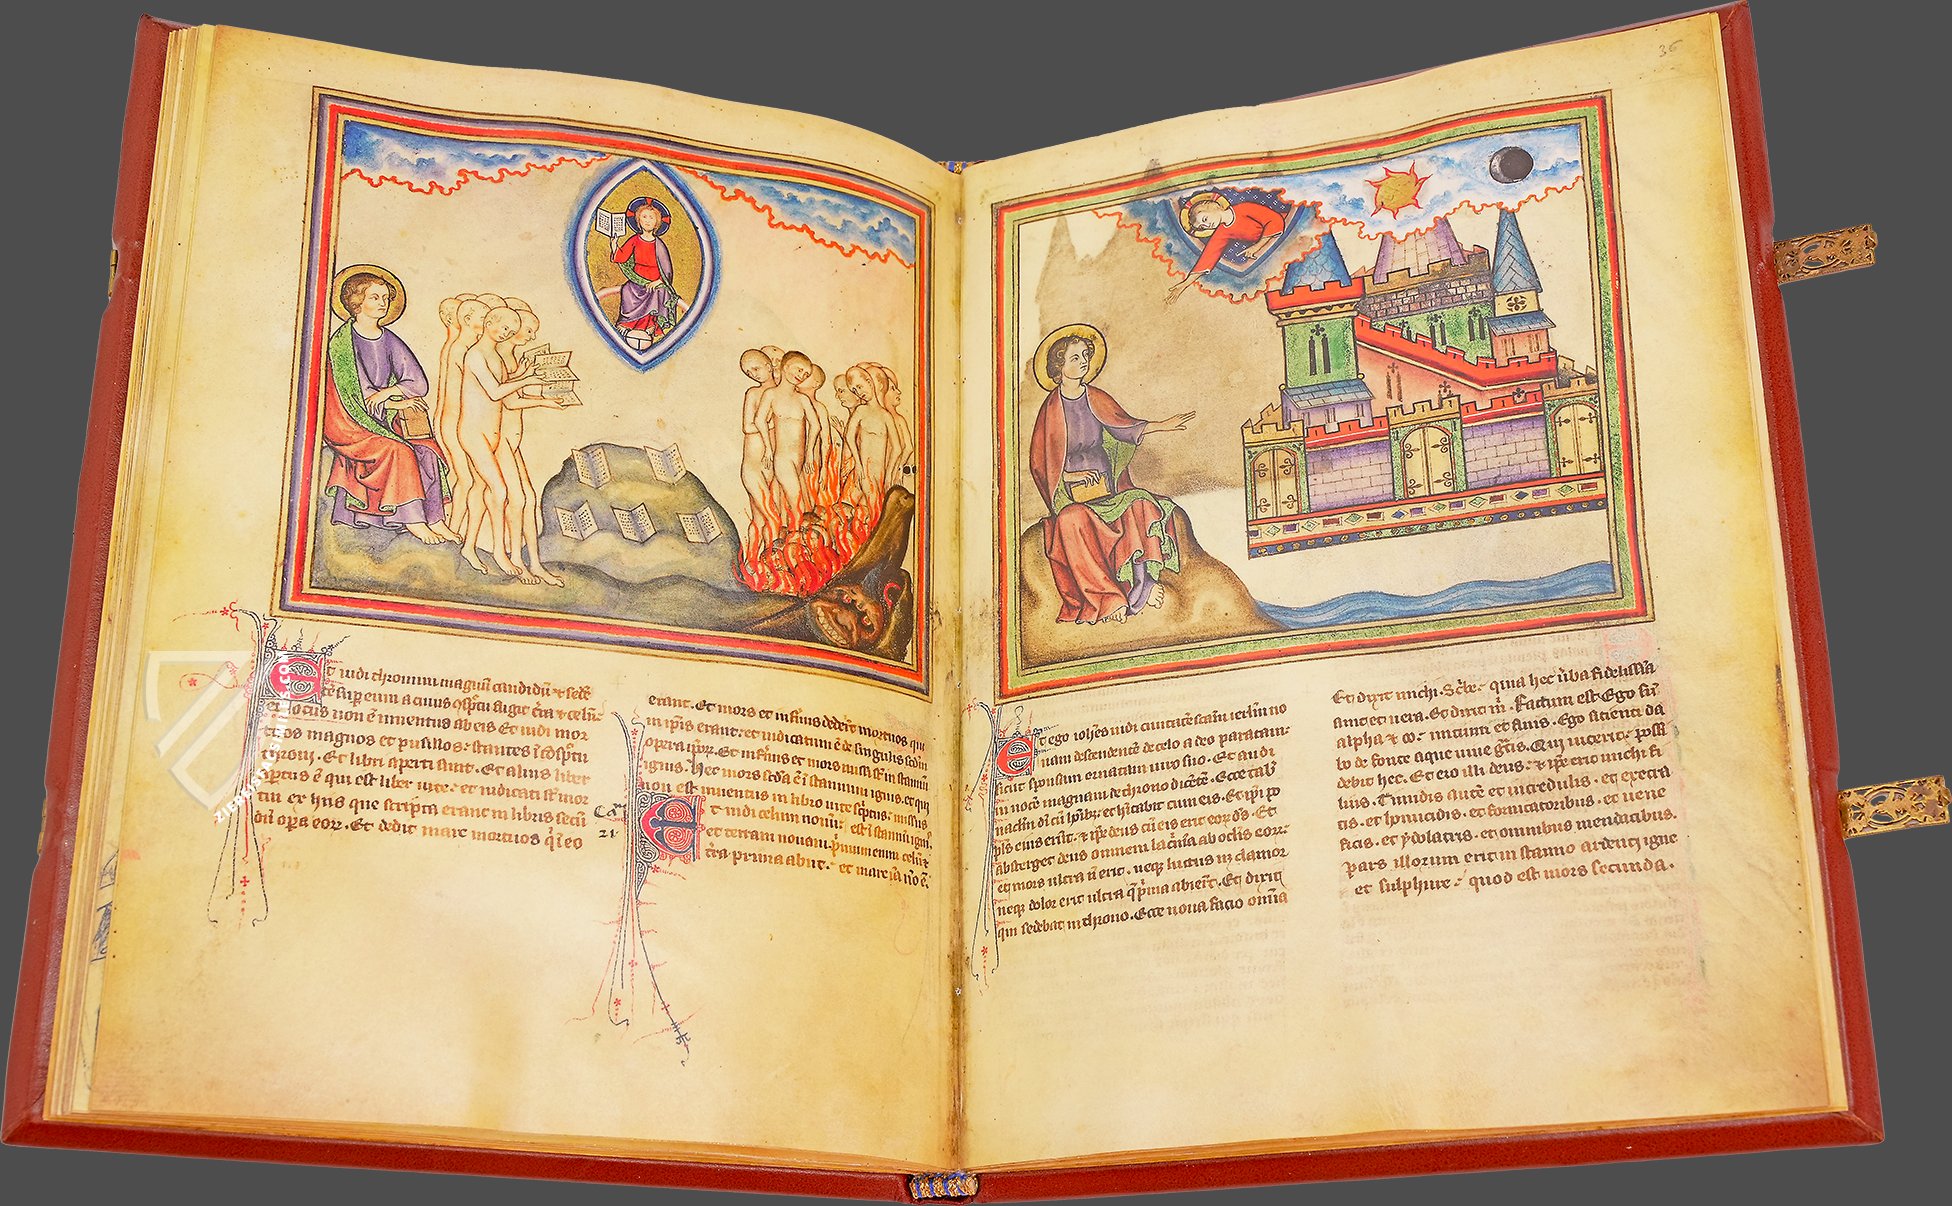 36
Et uidi thronum magnũ candidũ ⁊ sedẽ
tẽ super eum a cuius ɔspectu fugit t̃ra ⁊ celũ ⁊
locus non ẽ inuentus ab eis Et uidi mor
tuos magnos et pusillos stantes ĩ ɔspectu
throni. Et libri aperti sunt. Et alius liber
aptus ẽ qui est liber uite. et iudicati sũt mor
tui ex hiis que scripta erant in libris secũ
dũ opera eorũ. Et dedit mare mortuos qui in eo
erant. Et mors et infernus dederũt mortuos qui
in ipsis erant. et iudicatum ẽ de singulis secdm
opera ipsorũ. Et infernus et mors missi sũt in stagnũ
ignis. Hec mors scda ẽ ĩ stannum ignis. et qui
non est inuentus in libro uite scriptus. missus
est ĩ stannũ ignis.
Ca
21
Et uidi celum nouũ
et terram nouam. primum enim celũ ⁊
t̃ra prima abiit. et mare iã nõ ẽ.
Et ego ioh̃es uidi ciuitatẽ scãm ierlm̃ no
uam descendentẽ de celo a deo paratam
sicut sponsam ornatam uiro suo. Et audi
ui uocẽ magnam de throno dicẽtẽ. Ecce tab̃
naclm̃ dei cũ hoĩbz. et habitabit cum eis. Et ipsi po
pl̃s eius erũt. ⁊ ipse deus cũ eis erit eorũ ds. Et
absterget deus omnem lacrimã ab oclis eorũ.
et mors ultra nõ erit. neqz luctus neqz clamor
neqz dolor erit ultra q̃ prima abierũt. Et dixit
qui sedebat in throno. Ecce noua facio omnia
Et dixit michi. Scribe. quia hec uerba fidelissima
sunt et uera. Et dixit m̃. Factum est. Ego sum
alpha ⁊ ω. initium et finis. Ego sitienti da
bo de fonte aque uiue gratis. Qui uicerit possi
debit hec. Et ero illi deus. ⁊ ipse erit michi fi
lius. Timidis autẽ et incredulis. et execra
tis. et homicidis. et fornicatoribus. et uene
ficis. et ydolatris. et omnibus mendacibus.
pars illorum erit in stanno ardenti igne
et sulphure. quod est mors secunda.